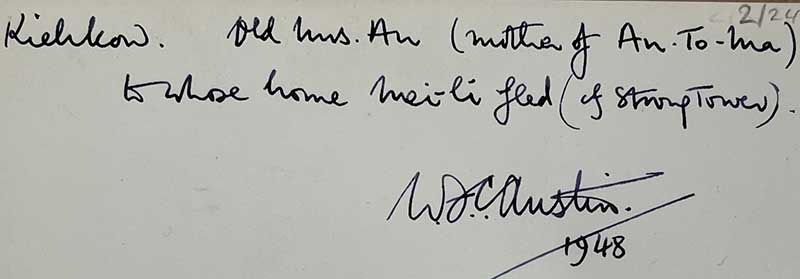 2/24
Kiehkow. Old Mrs. An (mother of An-To-Ma)
to whose home Mei-li fled (cf Strong Tower).
W.J.C. Austin.
1948